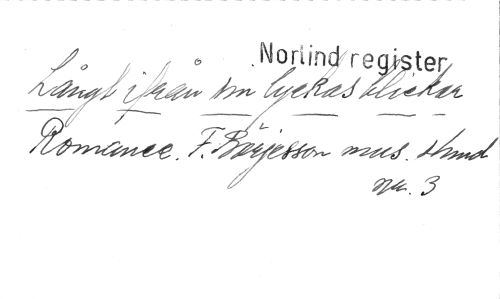 Norlind register
Långt ifrån om lyckas blickar
Romance. F. Börjesson mus. stund
nr. 3